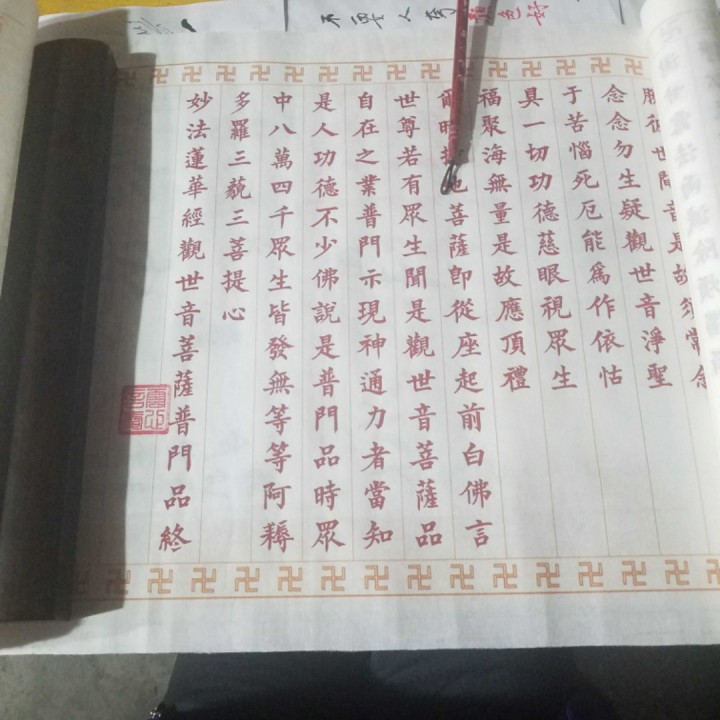 不要人誇顏色好
勝彼世間音是故須常念
念念勿生疑觀世音淨聖
于苦惱死厄能爲作依怙
具一切功德慈眼視眾生
福聚海無量是故應頂禮
爾時持地菩薩即從座起前白佛言
世尊若有眾生聞是觀世音菩薩品
自在之業普門示現神通力者當知
是人功德不少佛說是普門品時眾
中八萬四千眾生皆發無等等阿耨
多羅三藐三菩提心
妙法蓮華經觀世音菩薩普門品終